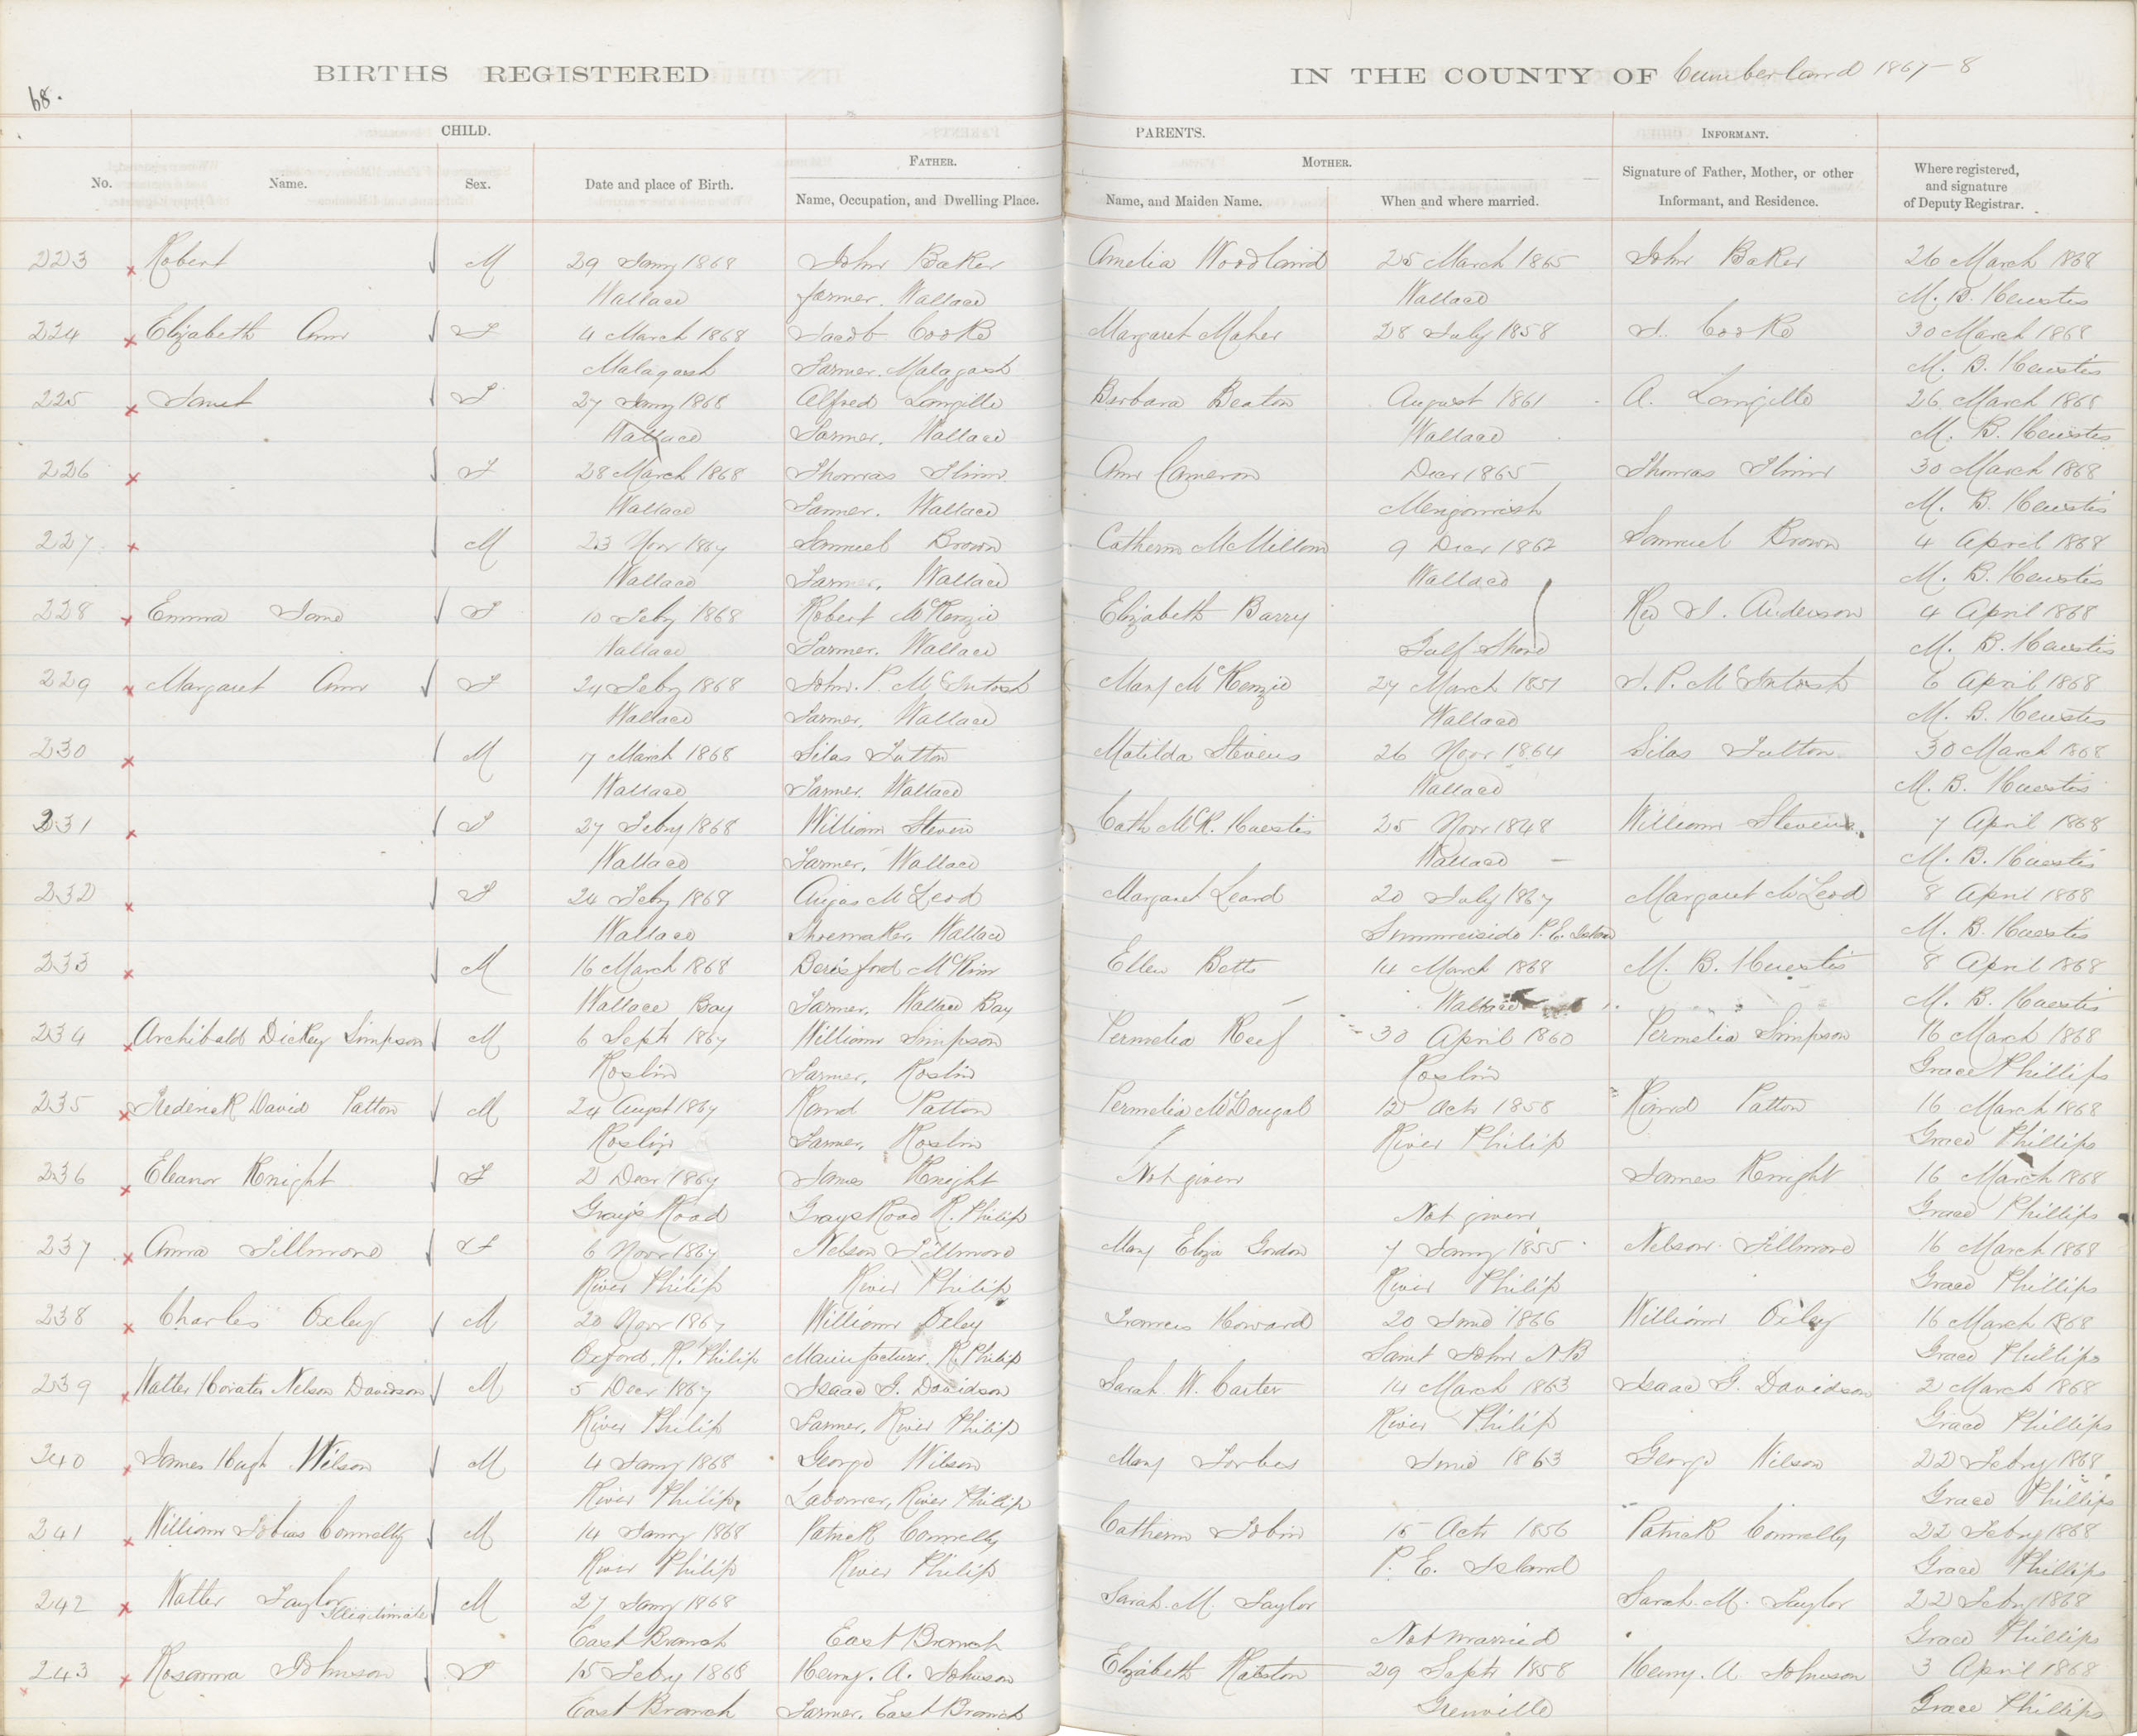 BIRTHS REGISTERED IN THE COUNTY OF Cumberland 1867-8
68.
CHILD. PARENTS. INFORMANT.
No. Name. Sex. Date and place of Birth. FATHER. Name, Occupation, and Dwelling Place. MOTHER. Name, and Maiden Name. When and where married. Signature of Father, Mother, or other Informant, and Residence. Where registered, and signature of Deputy Registrar.
223 Robert M 29 Jany 1868 John Baker Amelia Woodland 25 March 1865 John Baker 26 March 1868
Wallace farmer. Wallace Wallace M. B. Huestis
224 Elizabeth Ann F 4 March 1868 Jacob Cooke Margaret Maher 28 July 1858 J. Cooke 30 March 1868
Malagash Farmer. Malagash M. B. Huestis
225 Janet F 27 Jany 1868 Alfred Langille Barbara Beaton August 1861 A. Langille 26 March 1868
Wallace Farmer. Wallace Wallace M. B. Huestis
226 F 28 March 1868 Thomas Ann Cameron Decr 1865 Thomas 30 March 1868
Wallace Farmer. Wallace M. B. Huestis
227 M 23 Novr 1867 Samuel Brown Catherin McMillan 9 Decr 1862 Samuel Brown 4 April 1868
Wallace Farmer. Wallace Wallace M. B. Huestis
228 Emma Jane F 10 Feby 1868 Robert McKenzie Elizabeth Barry Rev J. Anderson 4 April 1868
Wallace Farmer. Wallace Gulf Shore M. B. Huestis
229 Margaret Ann F 24 Feby 1868 John. P. McIntosh Mary McKenzie 27 March 1851 J. P. McIntosh 6 April 1868
Wallace Farmer. Wallace Wallace M. B. Huestis
230 M 17 March 1868 Silas Fulton Matilda Stevens 26 Novr 1864 Silas Fulton 30 March 1868
Wallace Farmer. Wallace Wallace M. B. Huestis
231 F 27 Feby 1868 William Steven Cath McK. Huestis 25 Novr 1848 William Stevens 7 April 1868
Wallace Farmer. Wallace Wallace M. B. Huestis
232 F 24 Feby 1868 Angas McLeod Margaret Leard 20 July 1867 Margaret McLeod 8 April 1868
Wallace Shoemaker. Wallace Summerside P. E. Island M. B. Huestis
233 M 16 March 1868 Berisford McKim Ellen Betts 14 March 1868 M. B. Huestis 8 April 1868
Wallace Bay Farmer. Wallace Bay Wallace M. B. Huestis
234 Archibald Dickey Simpson M 6 Sept 1867 William Simpson Permelia Reef 30 April 1860 Permelia Simpson 16 March 1868
Roslin Farmer. Roslin Roslin Grace Phillips
235 Frederick David Patton M 24 Augst 1867 Rand Patton Permelia McDougal 12 Octr 1858 Rand Patton 16 March 1868
Roslin Farmer. Roslin River Philip Grace Phillips
236 Eleanor Knight F 2 Decr 1867 James Knight Not given James Knight 16 March 1868
Grays Road Grays Road R. Philip Not given Grace Phillips
237 Anna Fillmore F 6 Novr 1867 Nelson Fillmore Mary Eliza Gordon 7 Jany 1855 Nelson Fillmore 16 March 1868
River Philip River Philip River Philip Grace Phillips
238 Charles Oxley M 20 Novr 1867 William Oxley Frances Howard 20 June 1866 William Oxley 16 March 1868
Oxford. R. Philip Manufacturer. R. Philip Saint John NB Grace Phillips
239 Walter Horatio Nelson Davidson M 5 Decr 1867 Isaac G. Davidson Sarah W. Carter 14 March 1863 Isaac G. Davidson 2 March 1868
River Philip Farmer, River Philip River Philip Grace Phillips
240 James Hugh Wilson M 4 Jany 1868 George Wilson Mary Forbes June 1863 George Wilson 22 Febry 1868
River Philip. Labourer, River Philip Grace Phillips
241 William Tobias Connelly M 14 Jany 1868 Patrick Connelly Catherin Tobin 15 Octr 1856 Patrick Connelly 22 Febry 1868
River Philip River Philip P. E. Island Grace Phillips
242 Walter Taylor Illegitimate M 27 Jany 1868 Sarah. M. Taylor Sarah. M. Taylor 22 Febry 1868
East Branch East Branch Not married Grace Phillips
243 Rosanna Johnson F 15 Feby 1868 Henry. A. Johnson Elizabeth Ralston 29 Septr 1858 Henry. A Johnson 3 April 1868
East Branch Farmer. East Branch Grenville Grace Phillips